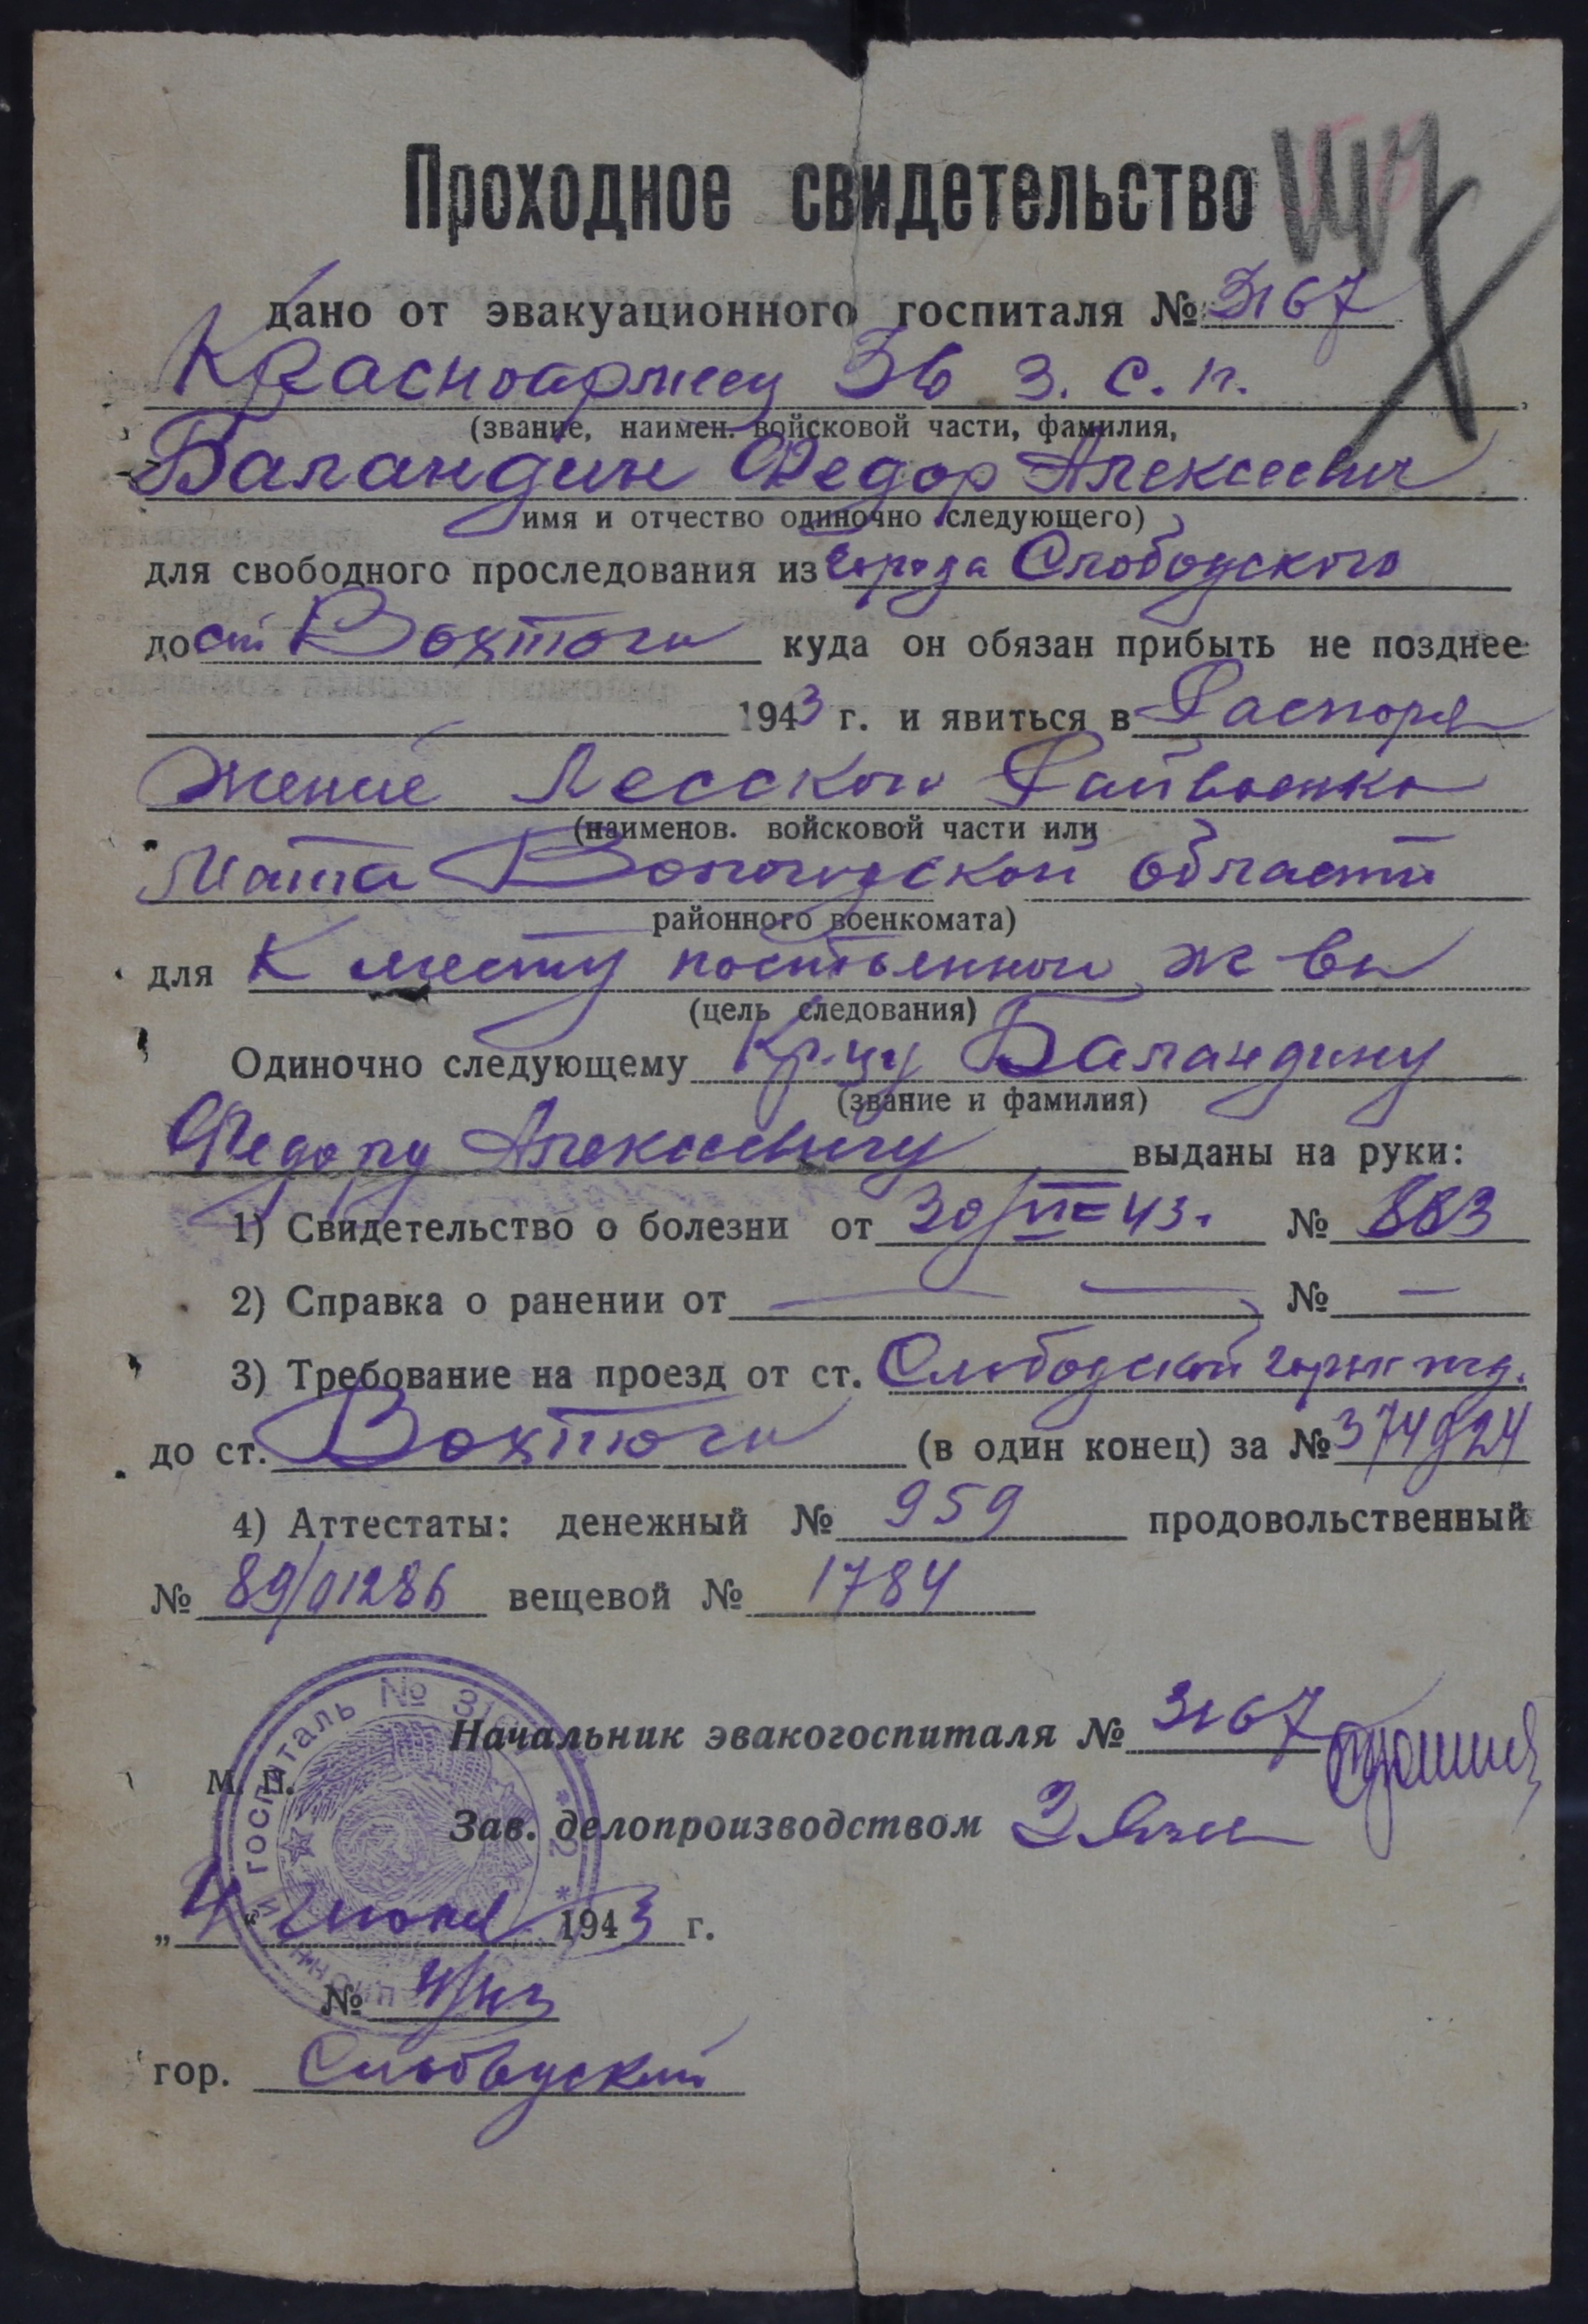 Проходное свидетельство
дано от эвакуационного госпиталя № 3167
Красноармеец 36 З. С. П.
(звание, наимен. войсковой части, фамилия,
Баландин Федор Алексеевич
имя и отчество одиночно следующего)
для свободного проследования из города Слободского
до ст Вохтоги куда он обязан прибыть не позднее
1943 г. и явиться в Распоря
жение Лесского Райвоенко
(наименов. войсковой части или
мата Вологодской области
районного военкомата)
для К месту постоянной ж-ва
(цель следования)
Одиночно следующему Кр-цу Баландину
(звание и фамилия)
Федору Алексеевичу выданы на руки:
1) Свидетельство о болезни от 30/VI-43. № 883
2) Справка о ранении от — — № —
3) Требование на проезд от ст. Слободской Горьк жд.
до ст. Вохтоги (в один конец) за № 374924
4) Аттестаты: денежный № 959 продовольственный
№ 89/01286 вещевой № 1784
Начальник эвакогоспиталя № 3167
М. П.
Зав. делопроизводством
„4“ июля 1943 г.
№
гор. Слободской
госпиталь № 31